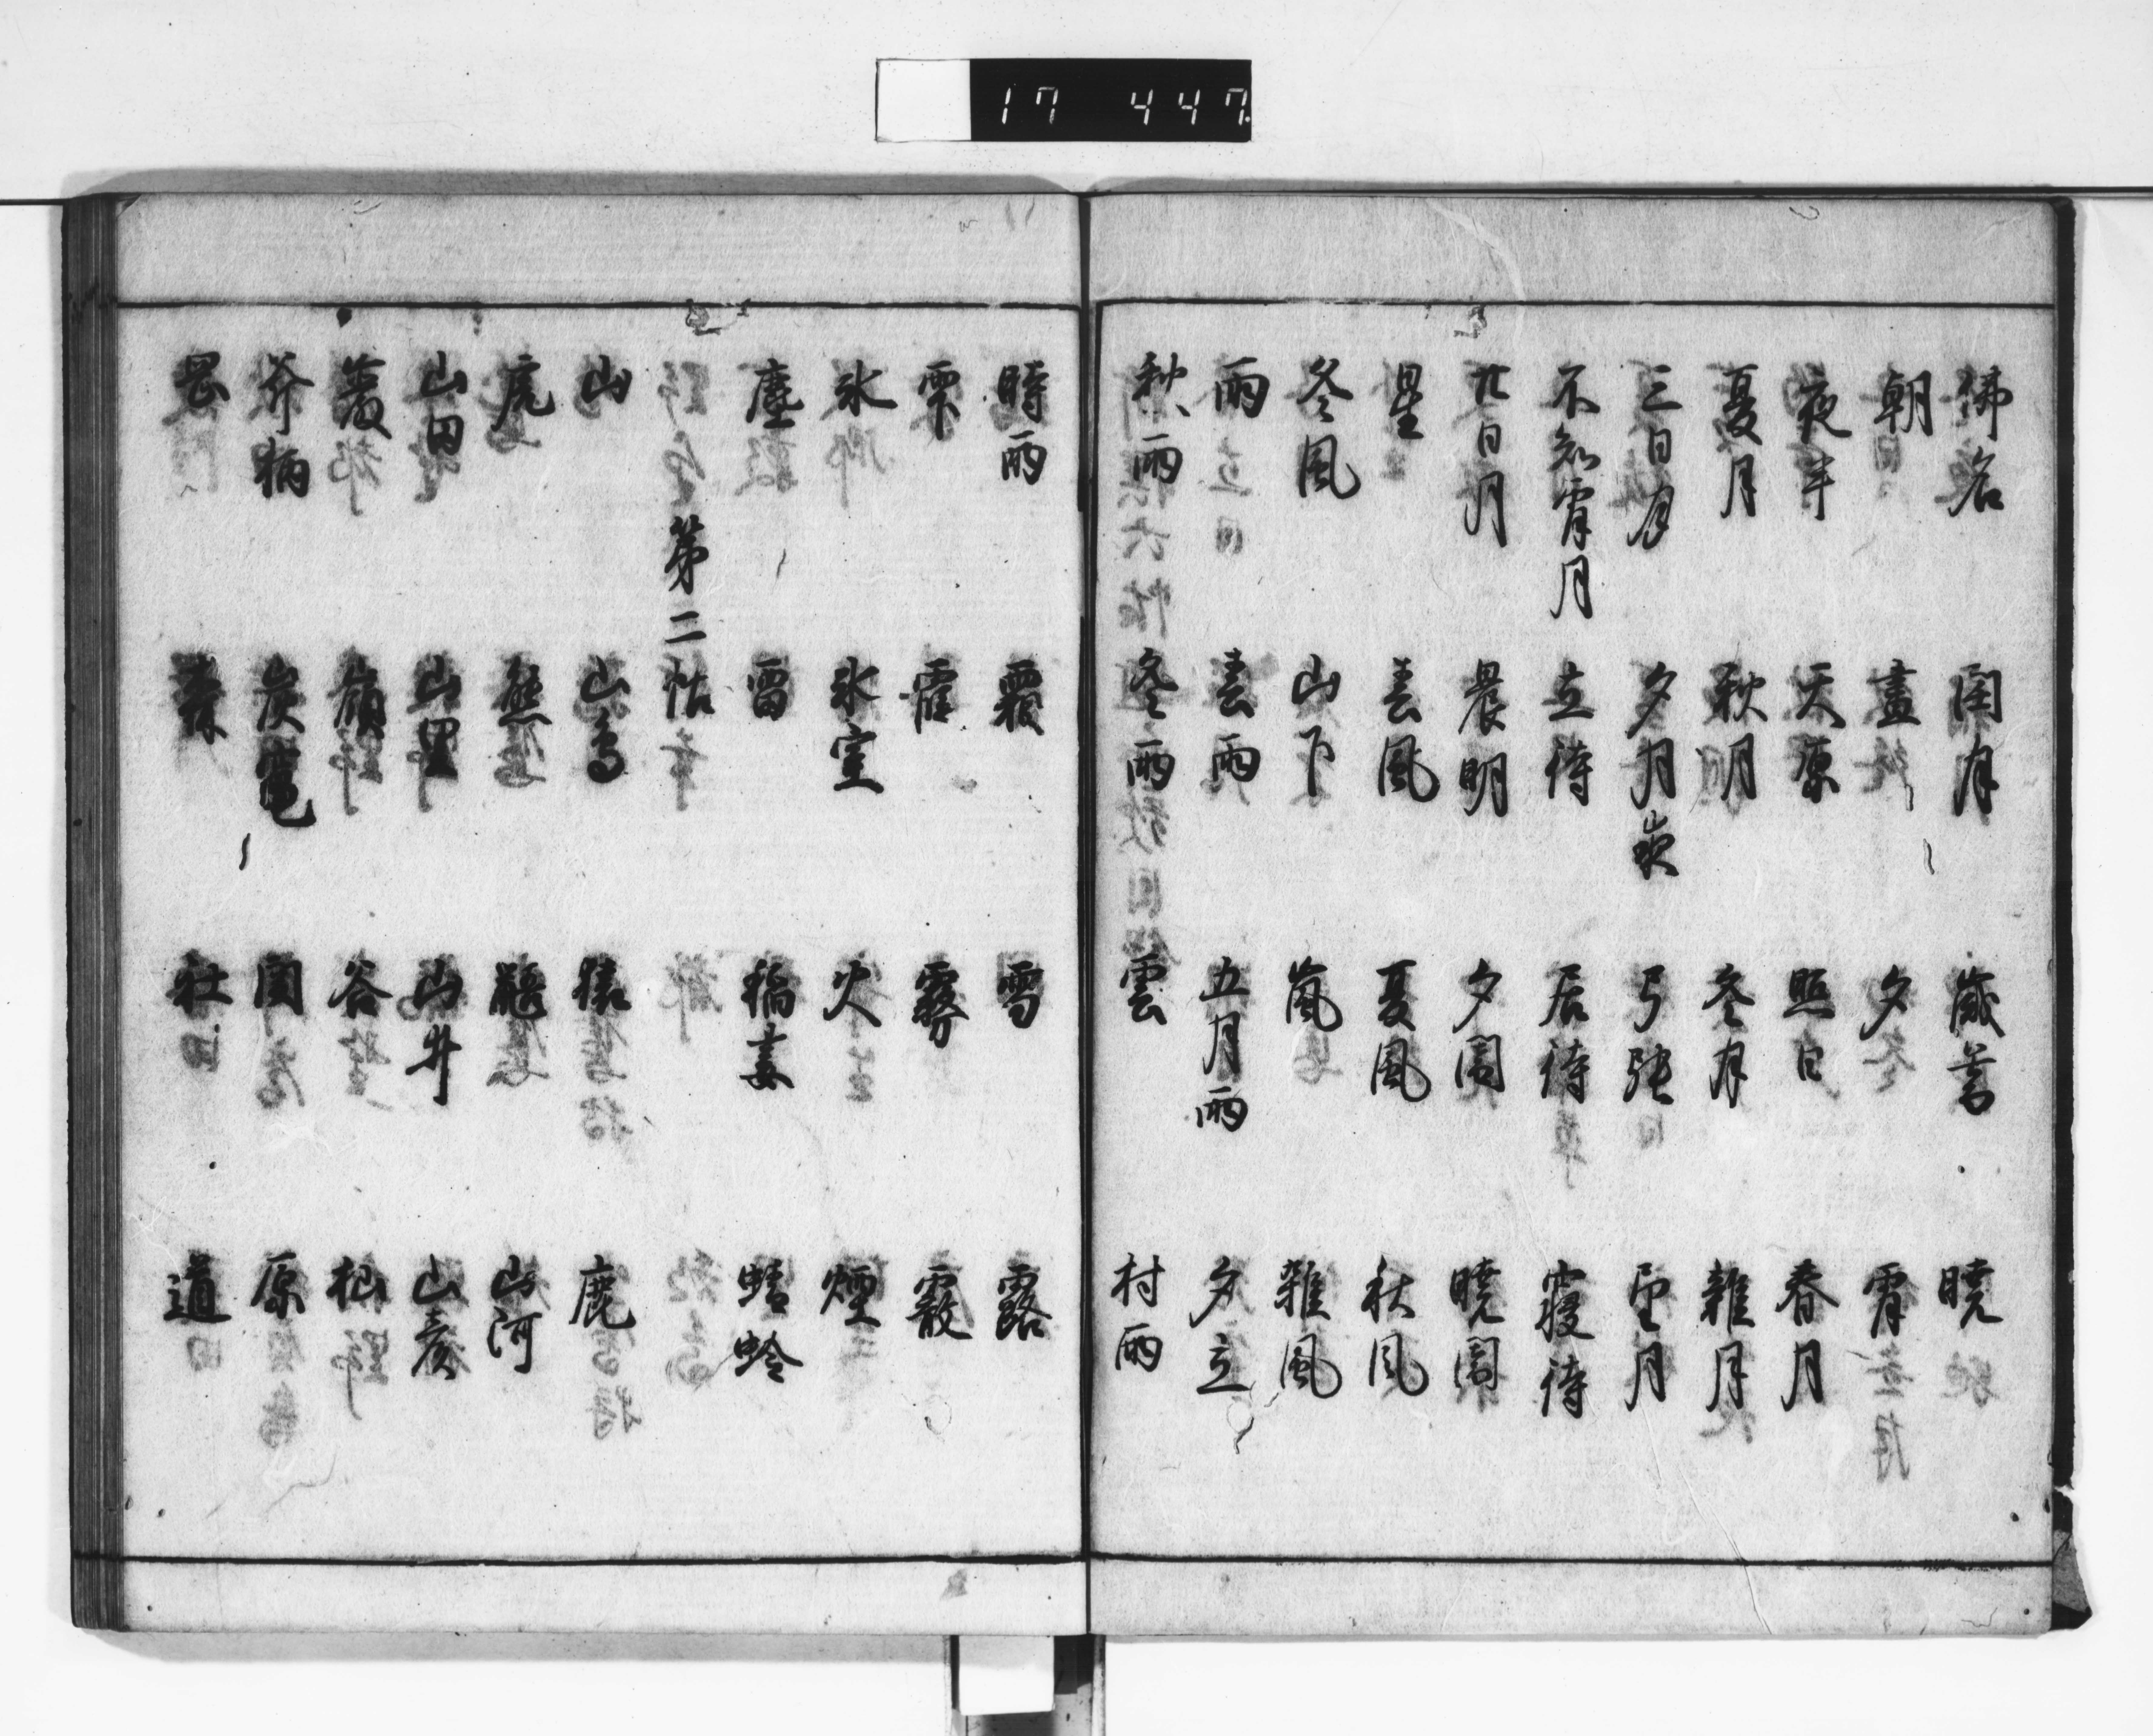 17 447
佛名 閏月 歳暮 暁
朝 晝 夕 宵
夜半 天原 照日 春月
夏月 秋月 冬月 雜月
三日月 夕月夜 弓張 望月
不知宵月 立待 居待 寝待
廿日月 晨明 夕闇 暁闇
星 春風 夏風 秋風
冬風 山下 嵐 雜風
雨 春雨 五月雨 夕立
秋雨 冬雨 雲 村雨
時雨 霰 雪 露
雫 霞 霧 霰
氷 氷室 火 煙
塵 雷 稲妻 蜻蛉
第二帖
山 山鳥 猿 鹿
虎 熊 山河
山田 山里 山井 山彦
嶺 谷 杣
斧柄 炭竈 関 原
岡 森 社 道